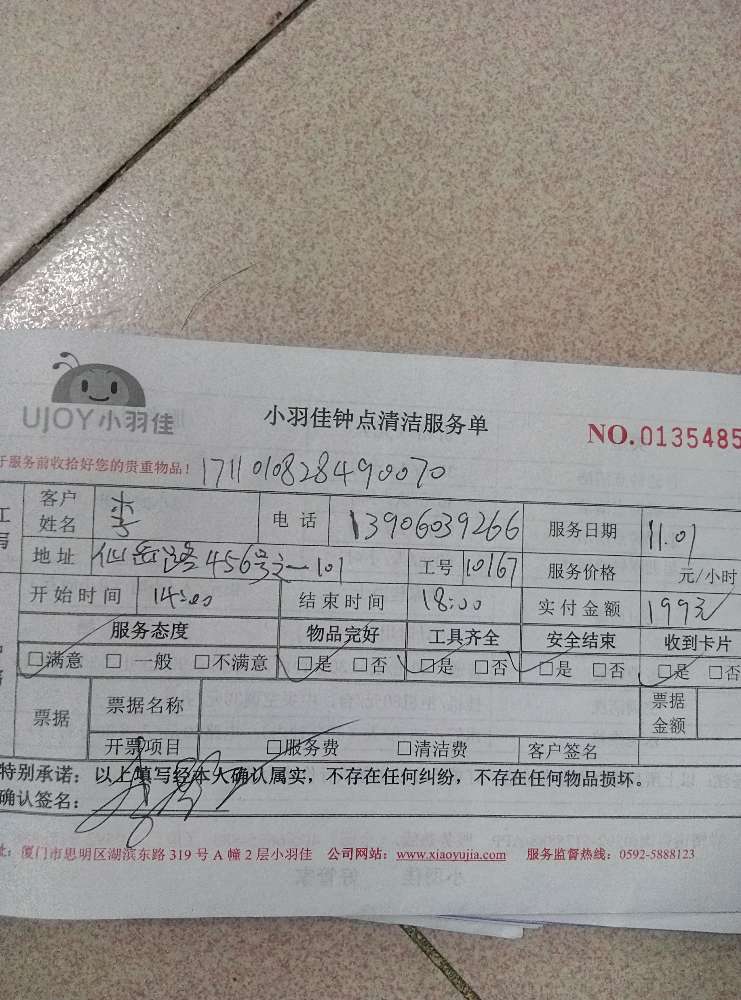 UJOY小羽佳
小羽佳钟点清洁服务单
NO.0135485
于服务前收拾好您的贵重物品！ 171101082849 0070
客户姓名 李 电话 13906039266 服务日期 11.01
地址 仙岳路456号之一101 工号 10167 服务价格 元/小时
开始时间 14:00 结束时间 18:00 实付金额 199元
服务态度 物品完好 工具齐全 安全结束 收到卡片
□满意 □ 一般 □不满意 □是 □否 □是 □否 □是 □否 □是 □否
票据 票据名称 票据金额
开票项目 □服务费 □清洁费 客户签名
特别承诺：以上填写经本人确认属实，不存在任何纠纷，不存在任何物品损坏。
确认签名：
址：厦门市思明区湖滨东路 319 号 A 幢 2 层小羽佳 公司网站：www.xiaoyujia.com 服务监督热线：0592-5888123